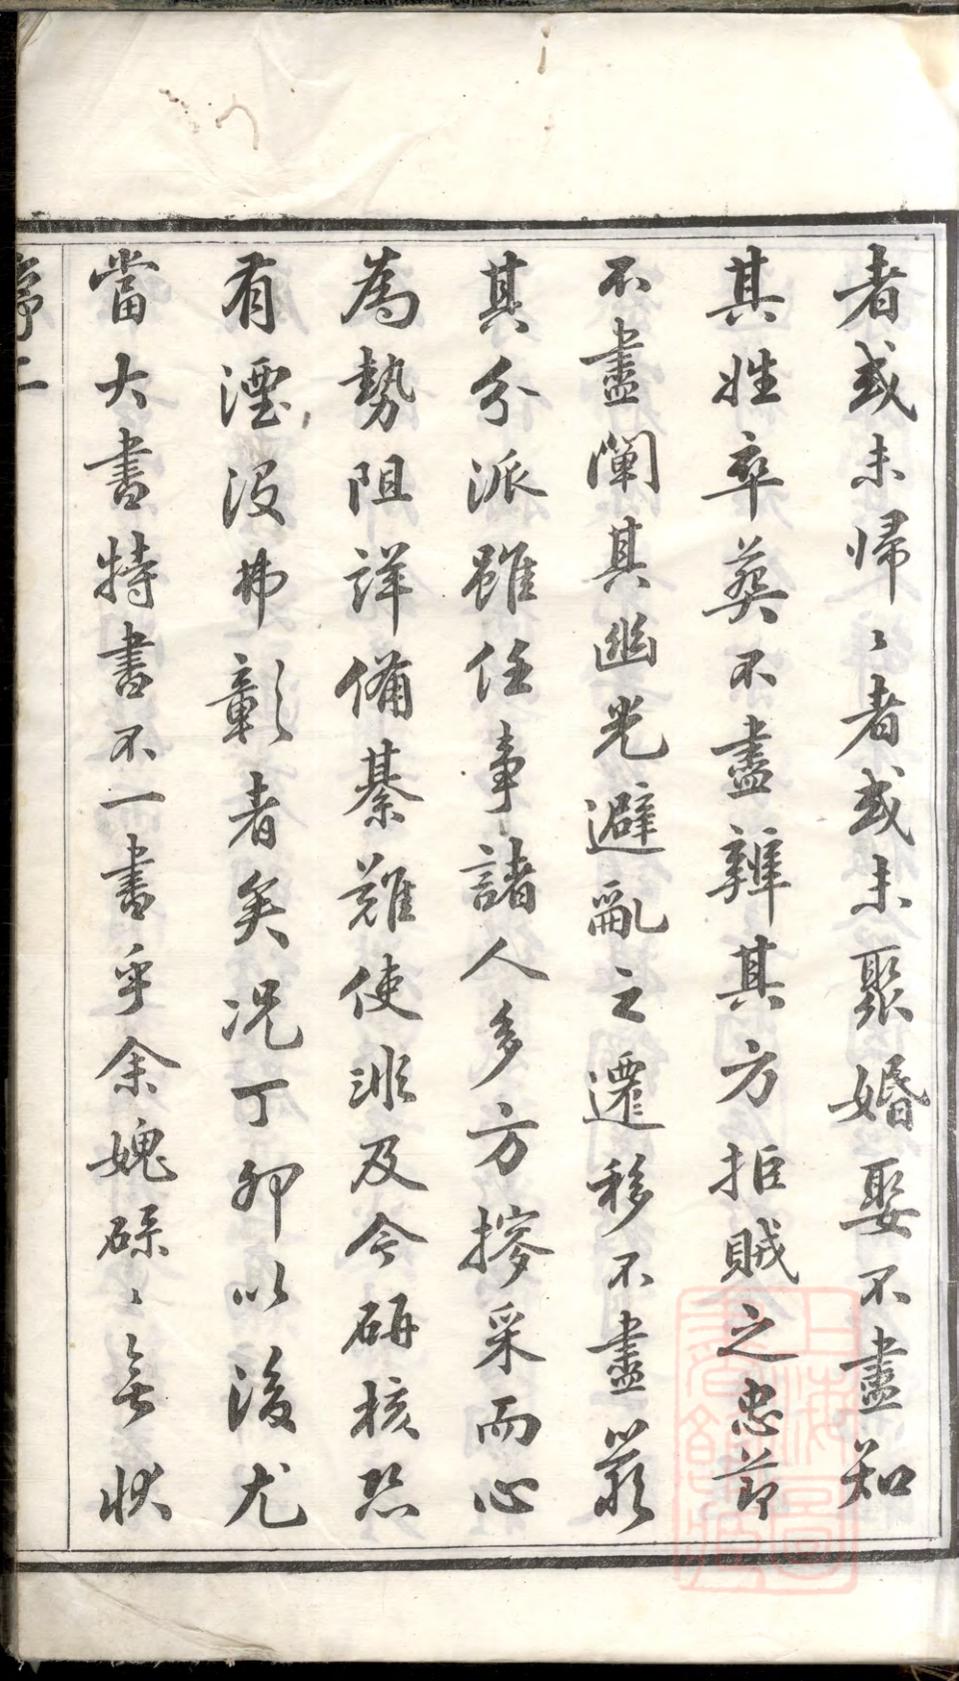 者或未歸〻者或未聚婚娶不盡知
其姓卒葬不盡辨其方拒賊之忠節
不盡闡其幽光避亂之遷移不盡嚴
其分派雖任事諸人多方搜采而心
為勢阻詳備綦難使非及今研核恐
有湮沒弗彰者矣况丁卯以後尤
當大書特書不一書乎余媿碌〻無狀
序二
上海圖書館藏